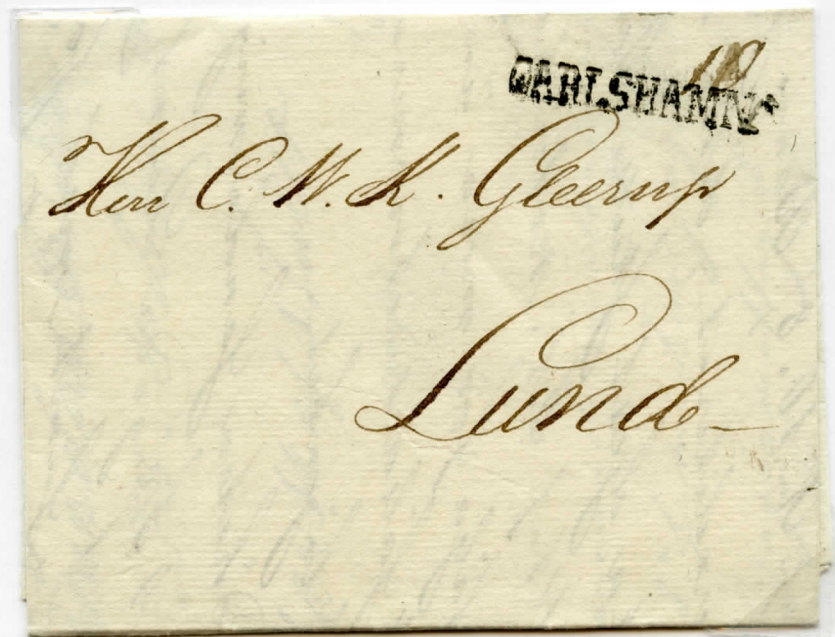 CARLSHAMN
Herr C. W. K. Gleerup
Lund